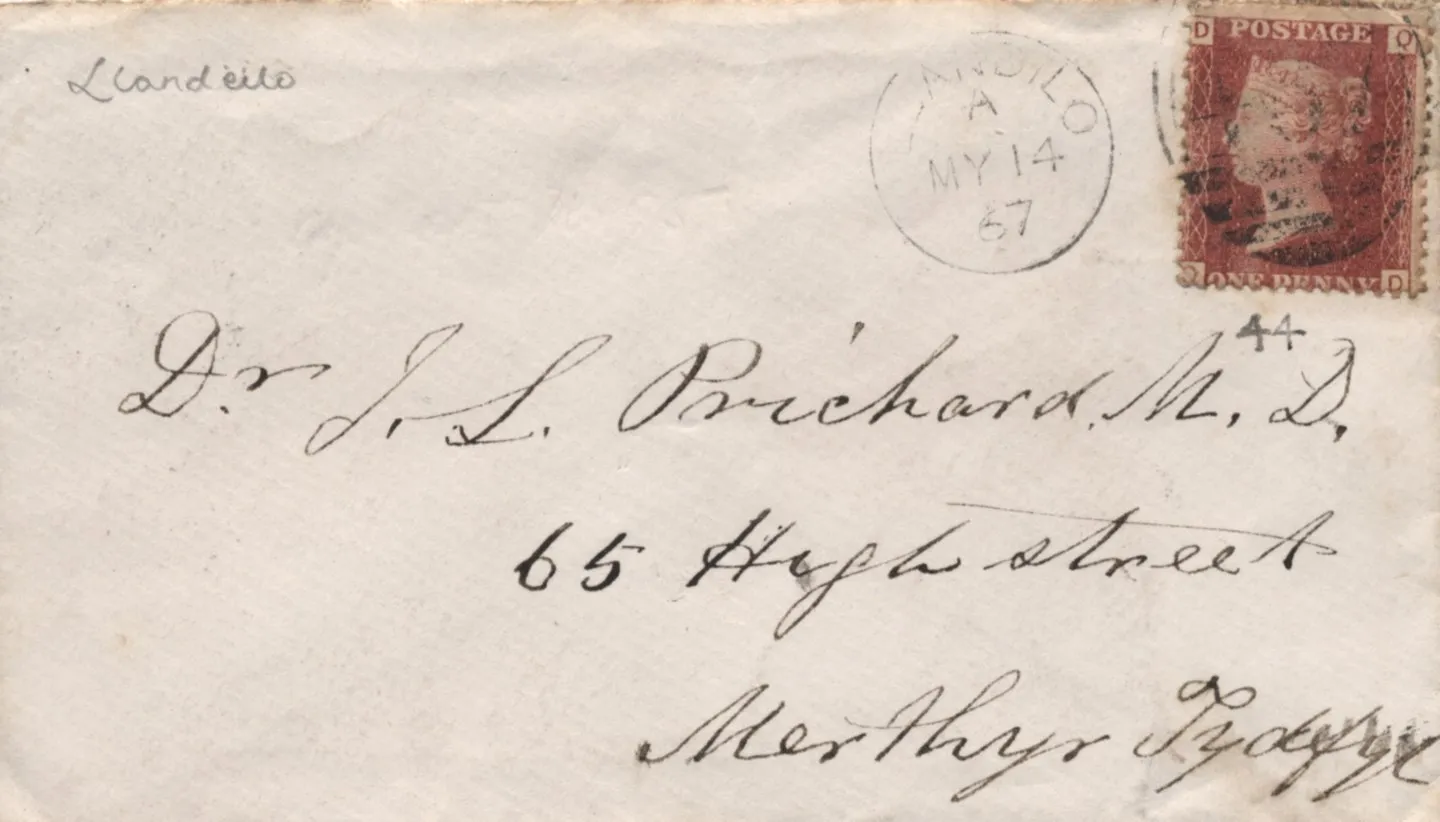 Llandeilo
LLANDILO
A
MY 14
67
D POSTAGE Q
Q ONE PENNY D
44
Dr J. L. Prichard. M. D.
65 High street
Merthyr